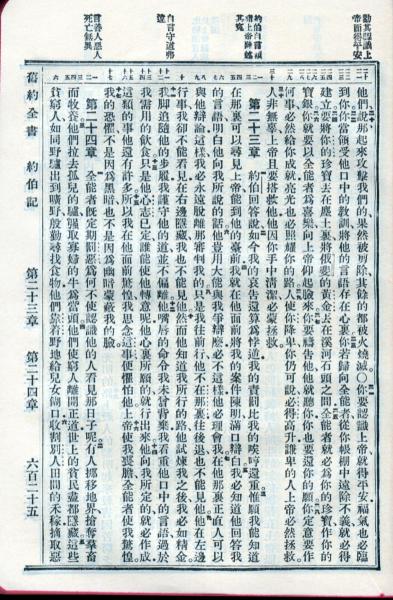 勸其認識上
帝則得平安
約伯自謂願
得上帝陳述
其冤
自言守道弗
違
言善人惡人
死亡無異
他們說那起來攻擊我們的果然被剪除其餘的都被火燒滅〇你要認識上帝就得平安福氣也必臨
到你你當領受他口中的教訓將他的言語存在心裏你若歸向全能者從你帳棚中遠除不義就必得
建立要將你的珍寶丟在塵土裏將俄斐的黃金丟在溪河石頭之間全能者就必為你的珍寶作你的
寶銀你就要以全能者為喜樂向上帝仰起臉來你要禱告他他就聽你你也要還你的願你定意要作
何事必然給你成就亮光也必照耀你的路人使你降卑你仍可說必得高升謙卑的人上帝必然拯救
人非無辜上帝且要搭救他他因你手中清潔必蒙拯救
第二十三章 約伯回答說如今我的哀告還算為悖逆我的責罰比我的唉哼還重惟願我能知道
在那裏可以尋見上帝能到他的臺前我就在他面前將我的案件陳明滿口辯白我必知道他回答我
的言語明白他向我所說的話他豈用大能與我爭辯麼必不這樣他必理會我在他那裏正直人可以
與他辯論這樣我必永遠脫離那審判我的只是我往前行他不在那裏往後退也不能見他他在左邊
行事我卻不能看見在右邊隱藏我也不能見他然而他知道我所行的路他試煉我之後我必如精金
我腳追隨他的步履我謹守他的道並不偏離他嘴唇的命令我未曾背棄我看重他口中的言語過於
我需用的飲食只是他心志已定誰能使他轉意呢他心裏所願的就行出來他向我所定的就必作成
這類的事他還有許多所以我在他面前驚惶我思念這事便懼怕他上帝使我喪膽全能者使我驚惶
我的恐懼不是因為黑暗也不是因為幽暗蒙蔽我的臉
第二十四章 全能者既定期罰惡為何不使認識他的人看見那日子呢有人挪移地界搶奪羣畜
而牧養他們拉去孤兒的驢強取寡婦的牛為當頭他們使窮人離開正道世上的貧民盡都隱藏這些
貧窮人如同野驢出到曠野殷勤尋找食物他們靠着野地給兒女糊口收割別人田間的禾稼摘取惡
舊約全書 約伯記 第二十三章 第二十四章 六百二十五